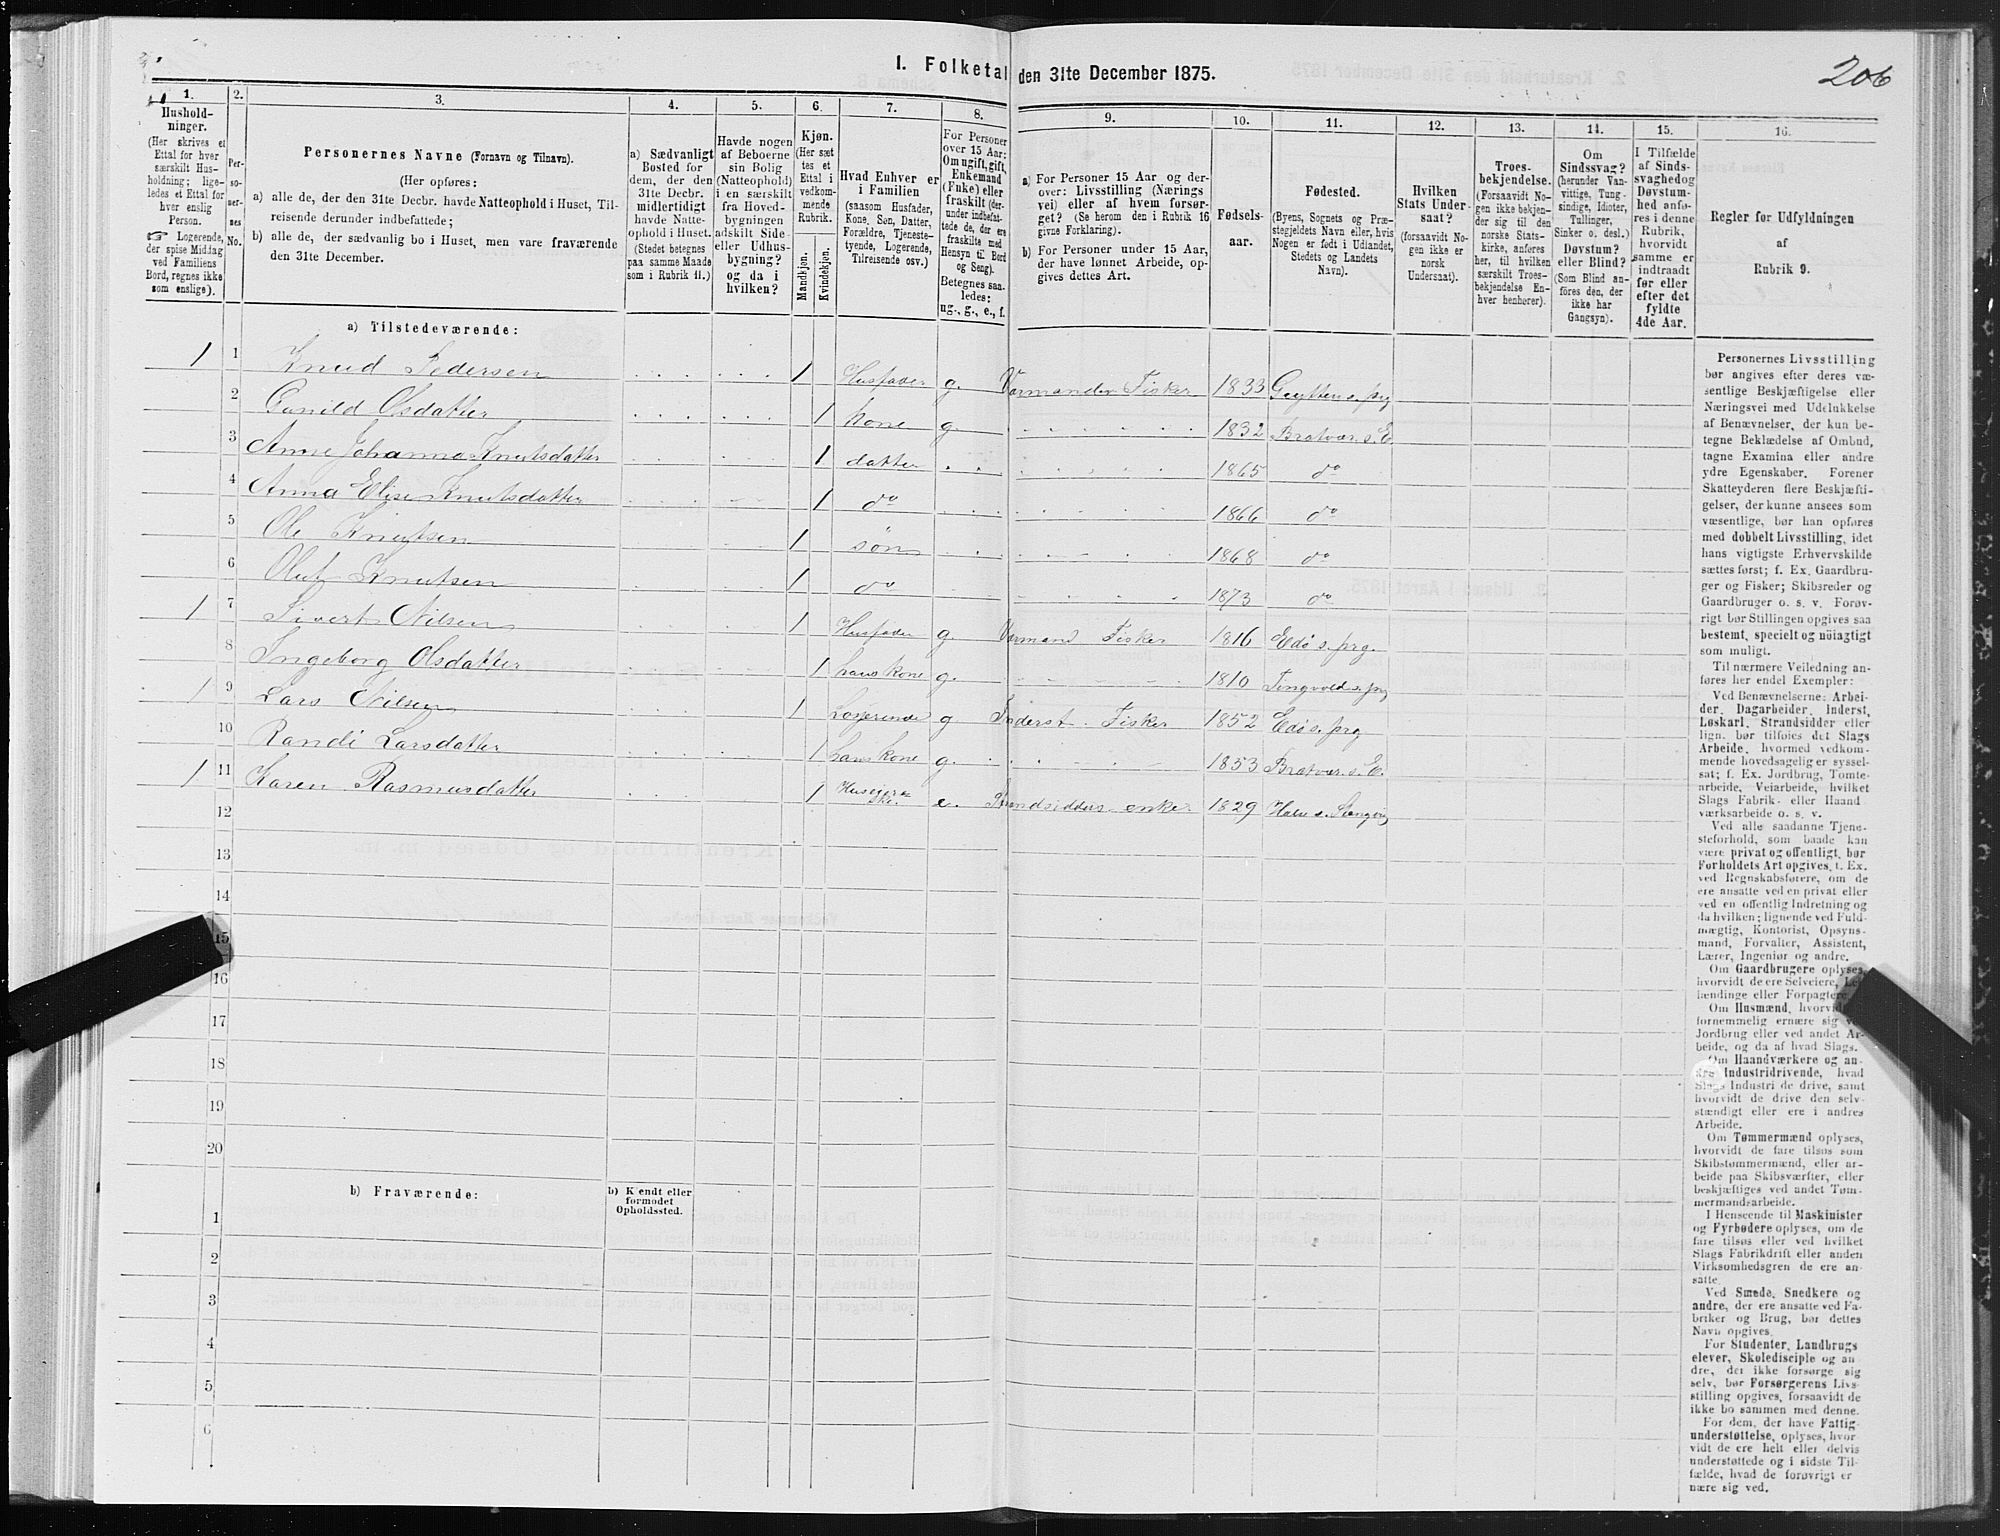 I. Folketal den 31te December 1875.
206
1.
Hushold-
ninger.
(Her skrives et
Ettal for hver
særskilt Hus-
holdning; lige-
ledes et Ettal for
hver enslig
Person.
☞ Logerende,
der spise Middag
ved Familiens
Bord, regnes ikke
som enslige).
2.
Per-
so-
ner-
nes
No.
3.
Personernes Navne (Fornavn og Tilnavn).
(Her opføres:
a) alle de, der den 31te Decbr. havde Natteophold i Huset, Til-
reisende derunder indbefattede;
b) alle de, der sædvanlig bo i Huset, men vare fraværende
den 31te December.
4.
a) Sædvanligt
Bosted for
dem, der den
31te Decbr.
midlertidigt
havde Natte-
ophold i Huset.
(Stedet betegnes
paa samme Maade
som i Rubrik 11.)
5.
Havde nogen
af Beboerne
sin Bolig
(Natteophold)
i en særskilt
fra Hoved-
bygningen
adskilt Side-
eller Udhus-
bygning?
og da i
hvilken?
6.
Kjøn.
(Her sæt-
tes et
Ettal i
vedkom-
mende
Rubrik.
Mandkjøn.
Kvindekjøn.
7.
Hvad Enhver er
i Familien
(saasom Husfader,
Kone, Søn, Datter,
Forældre, Tjeneste-
tyende, Logerende,
Tilreisende osv.)
8.
For Personer
over 15 Aar:
Om ugift, gift,
Enkemand
(Enke) eller
fraskilt (der-
under indbefat-
tede de, der ere
fraskilte med
Hensyn til Bord
og Seng).
Betegnes saa-
ledes:
ug., g., e., f.
9.
a) For Personer 15 Aar og der-
over: Livsstilling (Nærings
vei) eller af hvem forsør-
get? (Se herom den i Rubrik 16
givne Forklaring).
b) For Personer under 15 Aar,
der have lønnet Arbeide, op-
gives dettes Art.
10.
Fødsels-
aar.
11.
Fødested.
(Byens, Sognets og Præ-
stegjeldets Navn eller, hvis
Nogen er født i Udlandet,
Stedets og Landets
Navn).
12.
Hvilken
Stats Under
saat?
(forsaavidt No-
gen ikke er
norsk
Undersaat).
13.
Troes-
bekjendelse.
(Forsaavidt No-
gen ikke bekjen-
der sig til den
norske Stats-
kirke, anføres
her, til hvilken
særskilt Troes-
bekjendelse En-
hver henhører).
14.
Om
Sindssvag?
(herunder Van-
vittige, Tung-
sindige, Idioter,
Tullinger,
Sinker o. desl.)
Døvstum?
eller Blind?
(Som Blind an-
føres den, der
ikke har
Gangsyn).
15.
I Tilfælde
af Sinds-
svaghed og
Døvstum-
hed anfø-
res i denne
Rubrik,
hvorvidt
samme er
indtraadt
før eller
efter det
fyldte
4de Aar.
16.
Regler før Udfyldningen
af
Rubrik 9.
a) Tilstedeværende:
1 1 Knud Pedersen 1 Husfader g. Vormander Fisker 1833 Grytten s. prg
2 Gunild Olsdatter 1 kone g. 1832 Bratvær s. E
3 Anne Johanna Knutsdatter 1 datter 1865 do
4 Anna Elise Knutsdatter 1 do 1866 do
5 Ole Knutsen 1 søn 1868 do
6 Oluf Knutsen 1 do 1873 do
1 7 Sivert Nilsen 1 Husfader g. Vormand Fisker 1816 Edø s. prg.
8 Ingeborg Olsdatter 1 hans kone g. 1810 Tingvold s. prg
1 9 Lars Nilsen 1 Logerende g Inderst Fisker 1852 Edø s. prg
10 Randi Larsdatter 1 hans kone g. 1853 Bratvær s. E.
1 11 Karen Rasmusdatter 1 e. Strandsidders enke 1829
12
13
14
15
16
17
18
19
20
b) Fraværende:
b) Kjendt eller
formodet
Opholdssted.
1
2
3
4
5
6
Personernes Livsstilling
bør angives efter deres væ-
sentlige Beskjæftigelse eller
Næringsvei med Udelukkelse
af Benævnelser, der kun be-
tegne Beklædelse af Ombud,
tagne Examina eller andre
ydre Egenskaber. Forener
Skatteyderen flere Beskjæfti-
gelser, der kunne ansees som
væsentlige, bør han opføres
med dobbelt Livsstilling, idet
hans vigtigste Erhvervskilde
sættes først; f. Ex. Gaardbru-
ger og Fisker; Skibsreder og
Gaardbruger o. s. v. Forøv-
rigt bør Stillingen opgives saa
bestemt, specielt og nöiagtigt
som muligt.
Til nærmere Veiledning an-
føres her endel Exempler:
Ved Benævnelserne: Arbei-
der, Dagarbeider, Inderst,
Løskarl, Strandsidder eller
lign. bør tilføies det Slags
Arbeide, hvormed vedkom-
mende hovedsagelig er syssel-
sat; f. Ex. Jordbrug, Tomte-
arbeide, Veiarbeide, hvilket
Slags Fabrik- eller Haand
værksarbeide o. s. v.
Ved alle saadanne Tjene-
steforhold, som baade kan
være privat og offentligt, bør
Forholdets Art opgives, t. Ex.
ved Regnskabsførere, om de
ere ansatte ved en privat eller
ved en offentlig Indretning og
da hvilken; lignende ved Fuld-
mægtig, Kontorist, Opsyns-
mand, Forvalter, Assistent,
Lærer, Ingeniør og andre.
Om Gaardbrugere oplyses,
hvorvidt de ere Selveiere, Lei-
lændinge eller Forpagtere.
Om Husmænd, hvorvidt
fornemmelig ernære sig ved
Jordbrug eller ved andet Ar-
beide, og da af hvad Slags.
Om Haandværkere og an-
dre Industridrivende, hvad
Slags Industri de drive, samt
hvorvidt de drive den selv-
stændigt eller ere i andres
Arbeide.
Om Tømmermænd oplyses,
hvorvidt de fare tilsøs som
Skibstømmermænd, eller ar-
beide paa Skibsværfter, eller
beskjæftiges ved andet Tøm-
mermandsarbeide.
I Henseende til Maskinister
og Fyrbødere oplyses, om de
fare tilsøs eller ved hvilket
Slags Fabrikdrift eller anden
Virksomhedsgren de ere an-
satte.
Ved Smede, Snedkere og
andre, der ere ansatte ved Fa-
briker og Brug, bør dettes
Navn opgives.
For Studenter, Landbrugs
elever, Skoledisciple og an-
dre, der ikke forsørge sig
selv, bør Forsørgerens Livs-
stilling opgives, forsaavidt de
ikke bo sammen med denne.
For dem, der have Fattig-
understøttelse, oplyses, hvor-
vidt de ere helt eller delvis
understøttede og i sidste Til-
fælde, hvad de forøvrigt er
nære sig ved.